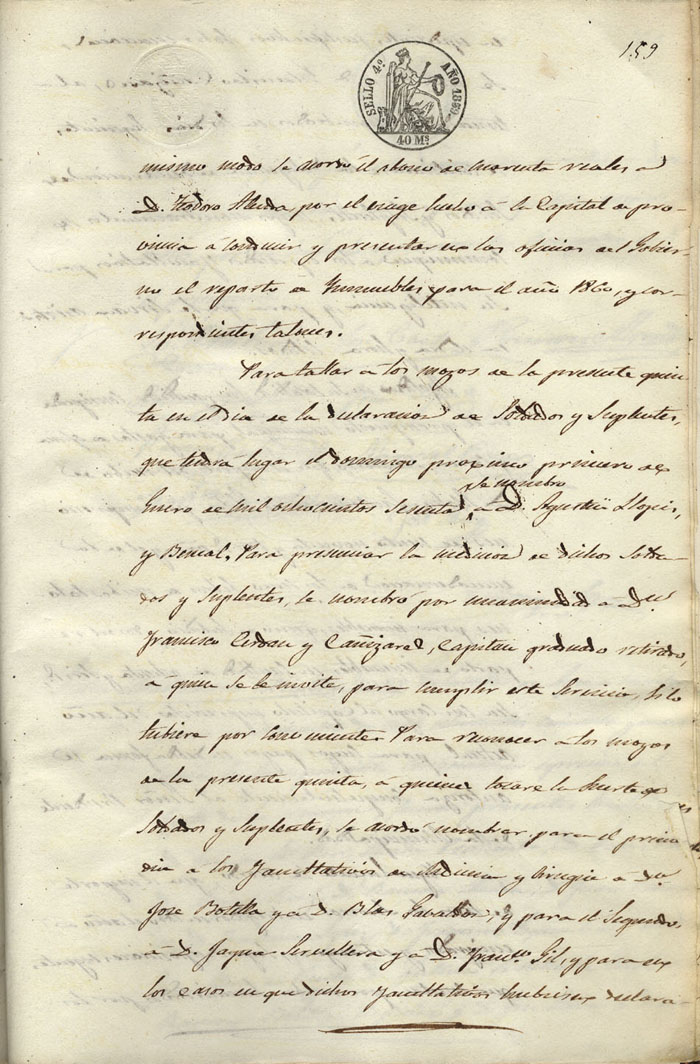 159
SELLO 4º AÑO 1859.
40 Ms
mismo modo se acordó el abono de cuarenta reales a
D. Teodoro por el viage hecho á la Capital de pro-
vincia á conducir y presentar en las oficinas del Gobier-
no el reparto de Inmuebles para el año 1860, y cor-
respondientes talones.
Para tallar a los mozos de la presente quin-
ta en el dia de la declaracion de Soldados y Suplentes,
que tendra lugar el domingo procsimo primero de
se nombró
Enero de mil ochocientos sesenta, a D. Agustin Llopis,
y Bernal. Para presenciar la medicion de dichos Solda-
dos y Suplentes, se nombró por unanimidad a Dn
Francisco Cerdan y Cañizares, Capitan graduado retirado,
á quien se le invite, para cumplir este Servicio, si lo
tubiere por conveniente. Para reconocer a los mozos
de la presente quinta, á quienes tocare la suerte de
Soldados y Suplentes, se acordó nombrar para el primer
dia a los Facultativos de Medicina y Cirugia a Dn
Jose Botella y a D. Blas Gavaldos, y para el Segundo,
á D. Jayme Servillera y a D. Franco Gil, y para en
los casos en que dichos Facultativos hubiesen declara-